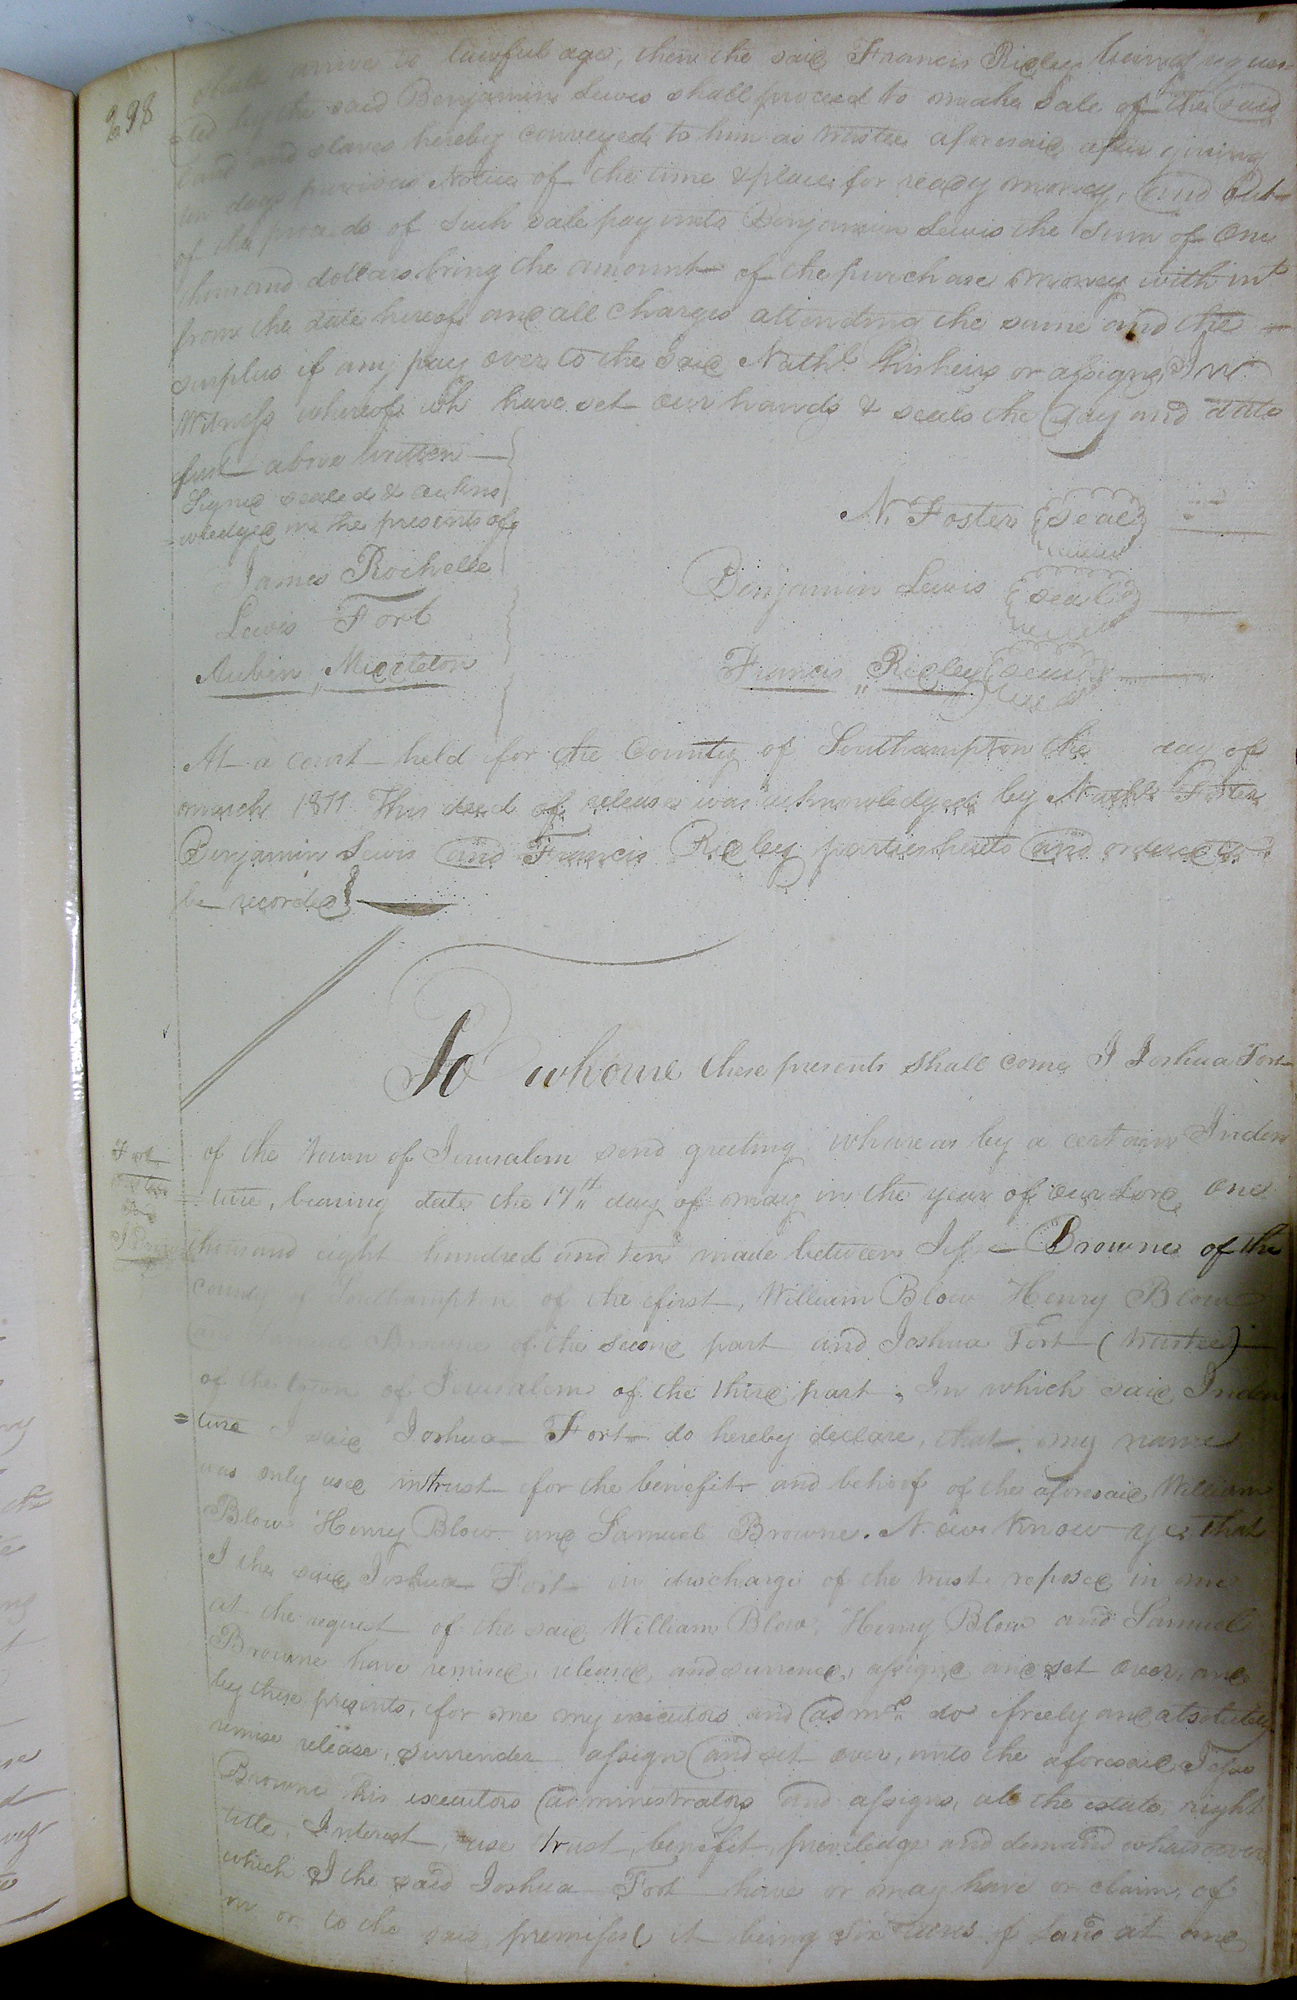 298
arrive to lawful age, then the said Francis Ridley being reques-
ted by the said Benjamin Lewis shall proceed to make Sale of the said
land and slaves hereby conveyed to him as trustee aforesaid, after giving
ten days previous Notice of the time & place for ready money, and out
of the proceeds of such sale pay unto Benjamin Lewis the Sum of One
thousand dollars being the amount of the purchase money with int
from the date hereof, and all Charges attending the same and the
surplus if any pay over to the said Nathl his heirs or assigns, In
Witness whereof we have set our hands & seals the day and date
first above written
Signed sealed & ackno
wledged in the presents of
James Rochelle
Lewis Fort
Aubin Middleton
N. Foster Seal
Benjamin Lewis Seal
Francis Ridley Seal
At a court held for the County of Southampton the day of
march 1811 This deed of release was acknowledged by Nathl Foster
Benjamin Lewis and Francis Ridley parties hereto and ordered to
be recorded
To whome these presents shall come I Joshua Fort
Fort
of the town of Jerusalem send greeting whareas by a certain Inden
ture, bearing date the 17th day of may in the year of our Lord One
thousand eight hundred and ten made between Jesse Browne of the
county of Southampton of the first, William Blow Henry Blow
and Samuel Browne of the second part and Joshua Fort (trustee)
of the town of Jerusalem of the third part, In which said Inden
= ture I said Joshua Fort do hereby declare, that my name
was only used intrust for the benefit and behoof of the aforesaid William
Blow Henry Blow and Samuel Browne. Now know ye that
I the said Joshua Fort in discharge of the trust reposed in me
at the request of the said William Blow, Henry Blow and Samuel
Browne have remised, released, and surrend, assigned and set over, and
by these presents, for me my executors and admrs do freely and absolutely
remise release, surrender assign and set over, unto the aforesaid Jesse
Browne his executors administrators and assigns, all the estate, right
title, Interest, use trust, benefit, priviledge and demand whatsoever
which I the said Joshua Fort have or may have or claim, of
in or to the said premises it being six acres of land at and